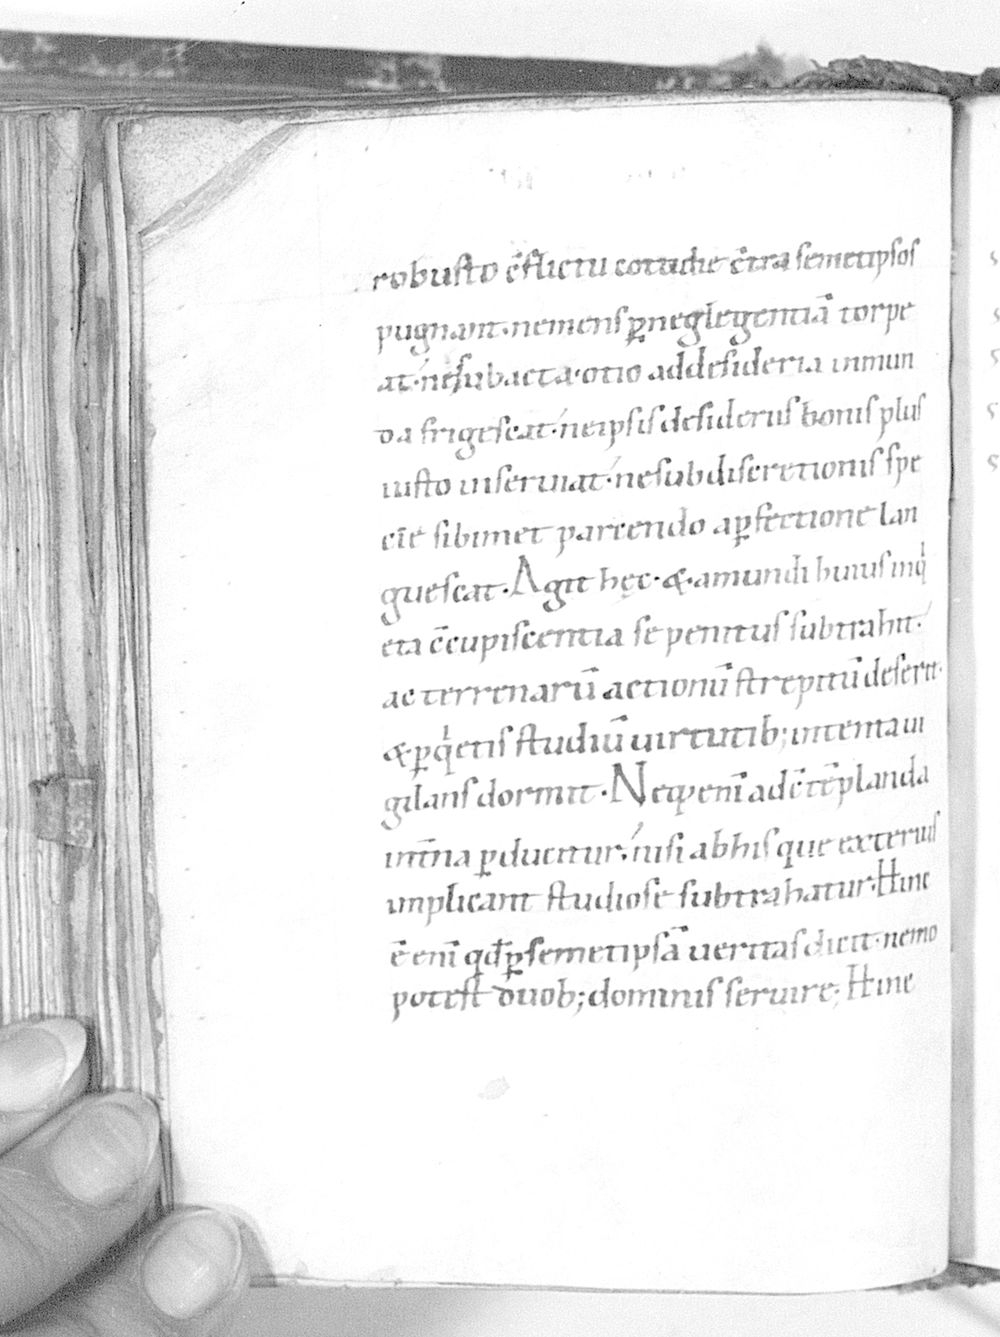 robusto c̄flictu cottidie c̄tra semetipsos
pugnant · nemens ꝑneglegentiā torpe
at · nesubacta · otio addesideria inmun
da frigescat · neipsis desideriis bonis plus
iusto inseruiat · nesubdiscretionis spe
ciē sibimet parcendo aꝑfectione lan
guescat · Agit hęc · & · amundi huius inq
eta c̄cupiscentia se penitus subtrahit ·
ac terrenarū actionū strepitū deserit ·
& ꝑqetis studiū uirtutib; intenta ui
gilans dormit · Neqꝫ enī adc̄tēplanda
int̄na ꝑducitur · nisi abhis que exterius
implicant studiose subtrahatur · Hinc
ē enī qđ ꝑsemetipsā ueritas dicit · nemo
potest duob; dominis seruire; Hinc